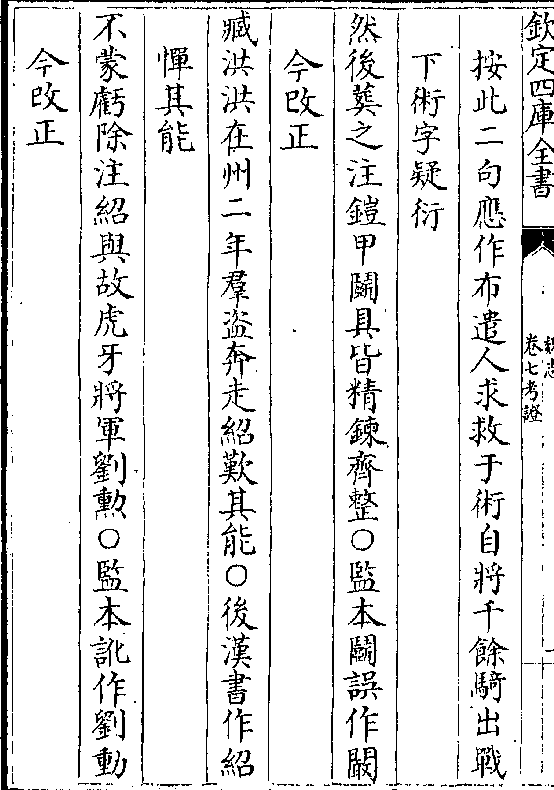 欽定四庫全書
魏志
卷七考證
按此二句應作布遣人求救于術自將千餘騎出戰
下術字疑衍
然後䔳之注鎧甲鬭具皆精鍊齊整○監本鬭誤作闞
今改正
臧洪洪在州二年羣盗奔走紹歎其能○後漢書作紹
憚其能
不蒙虧除注紹與故虎牙將軍劉勲○監本訛作劉動
今改正